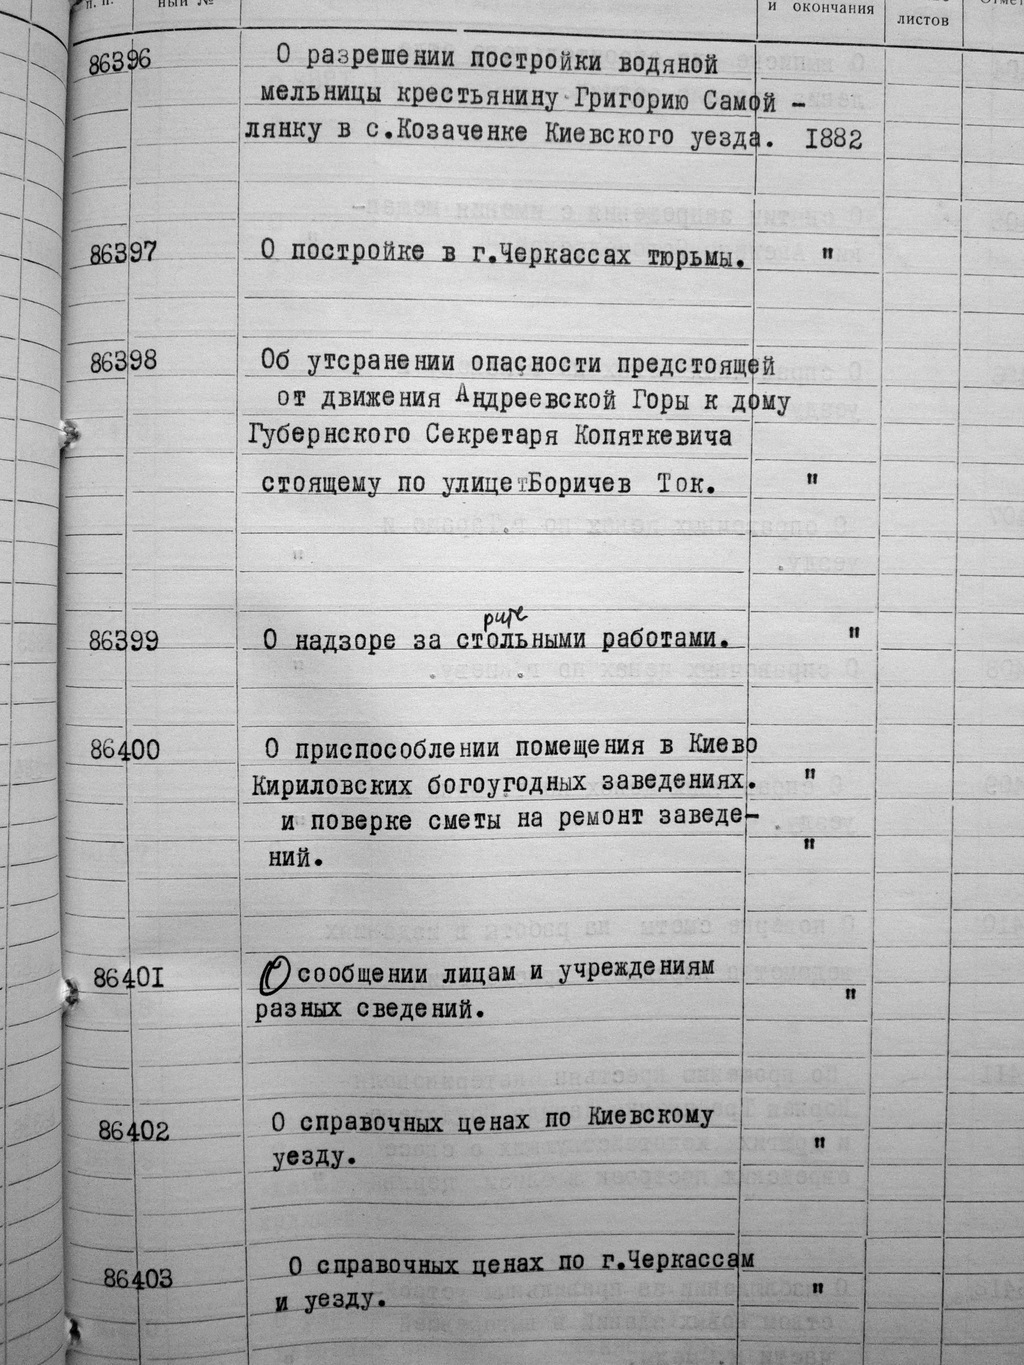 п. п.
ный №
и окончания
листов
86396 О разрешении постройки водяной
мельницы крестьянину Григорию Самой -
лянку в с.Козаченке Киевского уезда. 1882
86397 О постройке в г.Черкассах тюрьмы. "
86398 Об утсранении опасности предстоящей
от движения Андреевской Горы к дому
Губернского Секретаря Копяткевича
стоящему по улице Боричев Ток. "
86399 О надзоре за стольными работами. "
86400 О приспособлении помещения в Киево
Кириловских богоугодных заведениях. "
и поверке сметы на ремонт заведе-
ний. "
86401 О сообщении лицам и учреждениям
разных сведений. "
86402 О справочных ценах по Киевскому
уезду. "
86403 О справочных ценах по г.Черкассам
и уезду. "